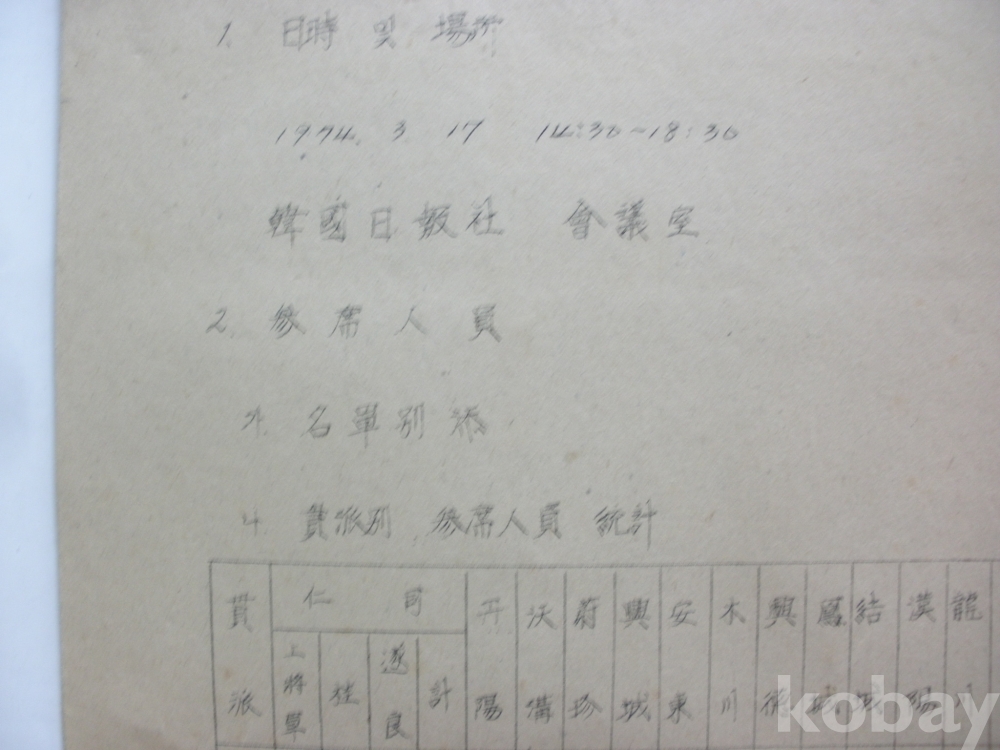 1. 日時 및 場所
1974. 3 17 14:30~18:30
韓國日報社 會議室
2. 參席人員
가. 名單別添
나. 貫派別 參席人員 統計
貫派 仁同 開陽 沃溝 蔚珍 興城 安東 木川 興德 結城 漢陽 龍
上將軍 桂 遂良 計
kobay